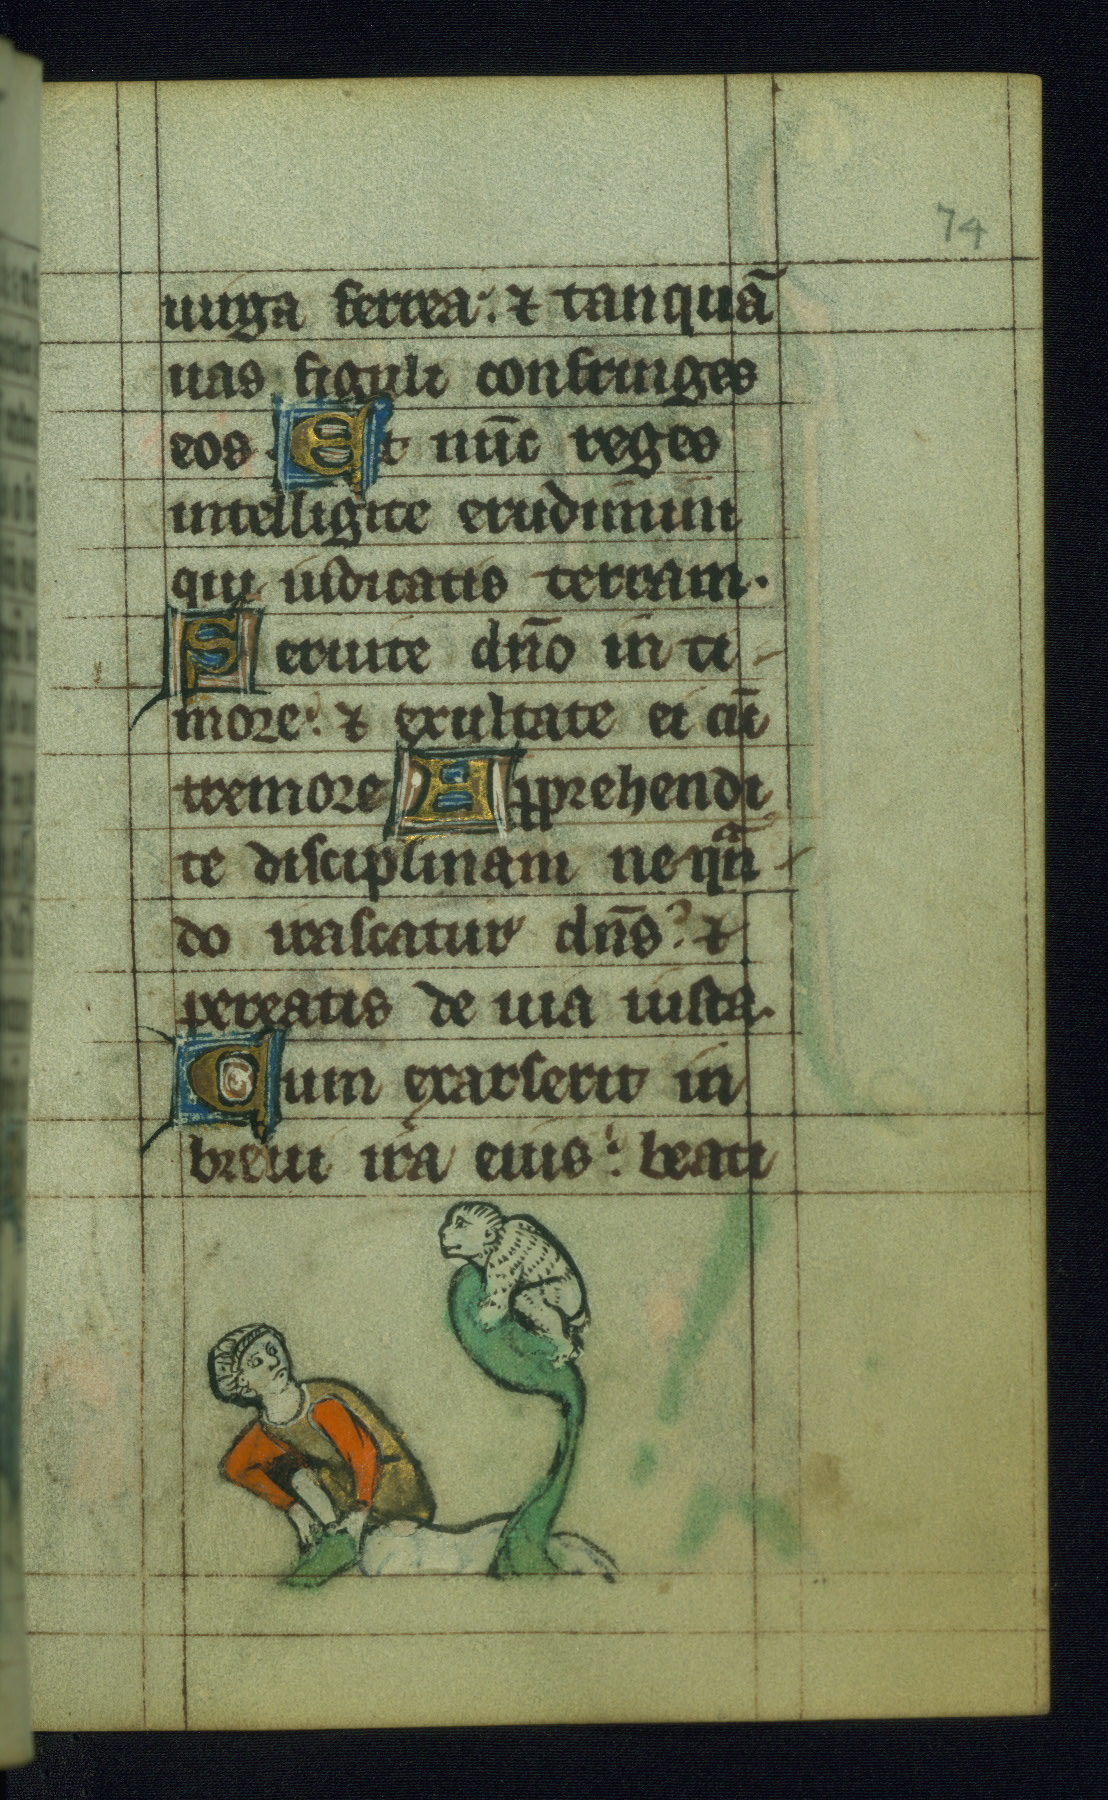 74
uirga ferrea. ⁊ tanquã
uas figuli confringes
eos. Et nũc reges
intelligite erudimini
qui iudicatis terram.
Seruite dño in ti-
more: ⁊ exultate ei cũ
tremore Apprehendi
te disciplinam ne qñ-
do irascatur dñs: ⁊
pereatis de uia iusta.
Cum exarserit in
breui ira eius: beati